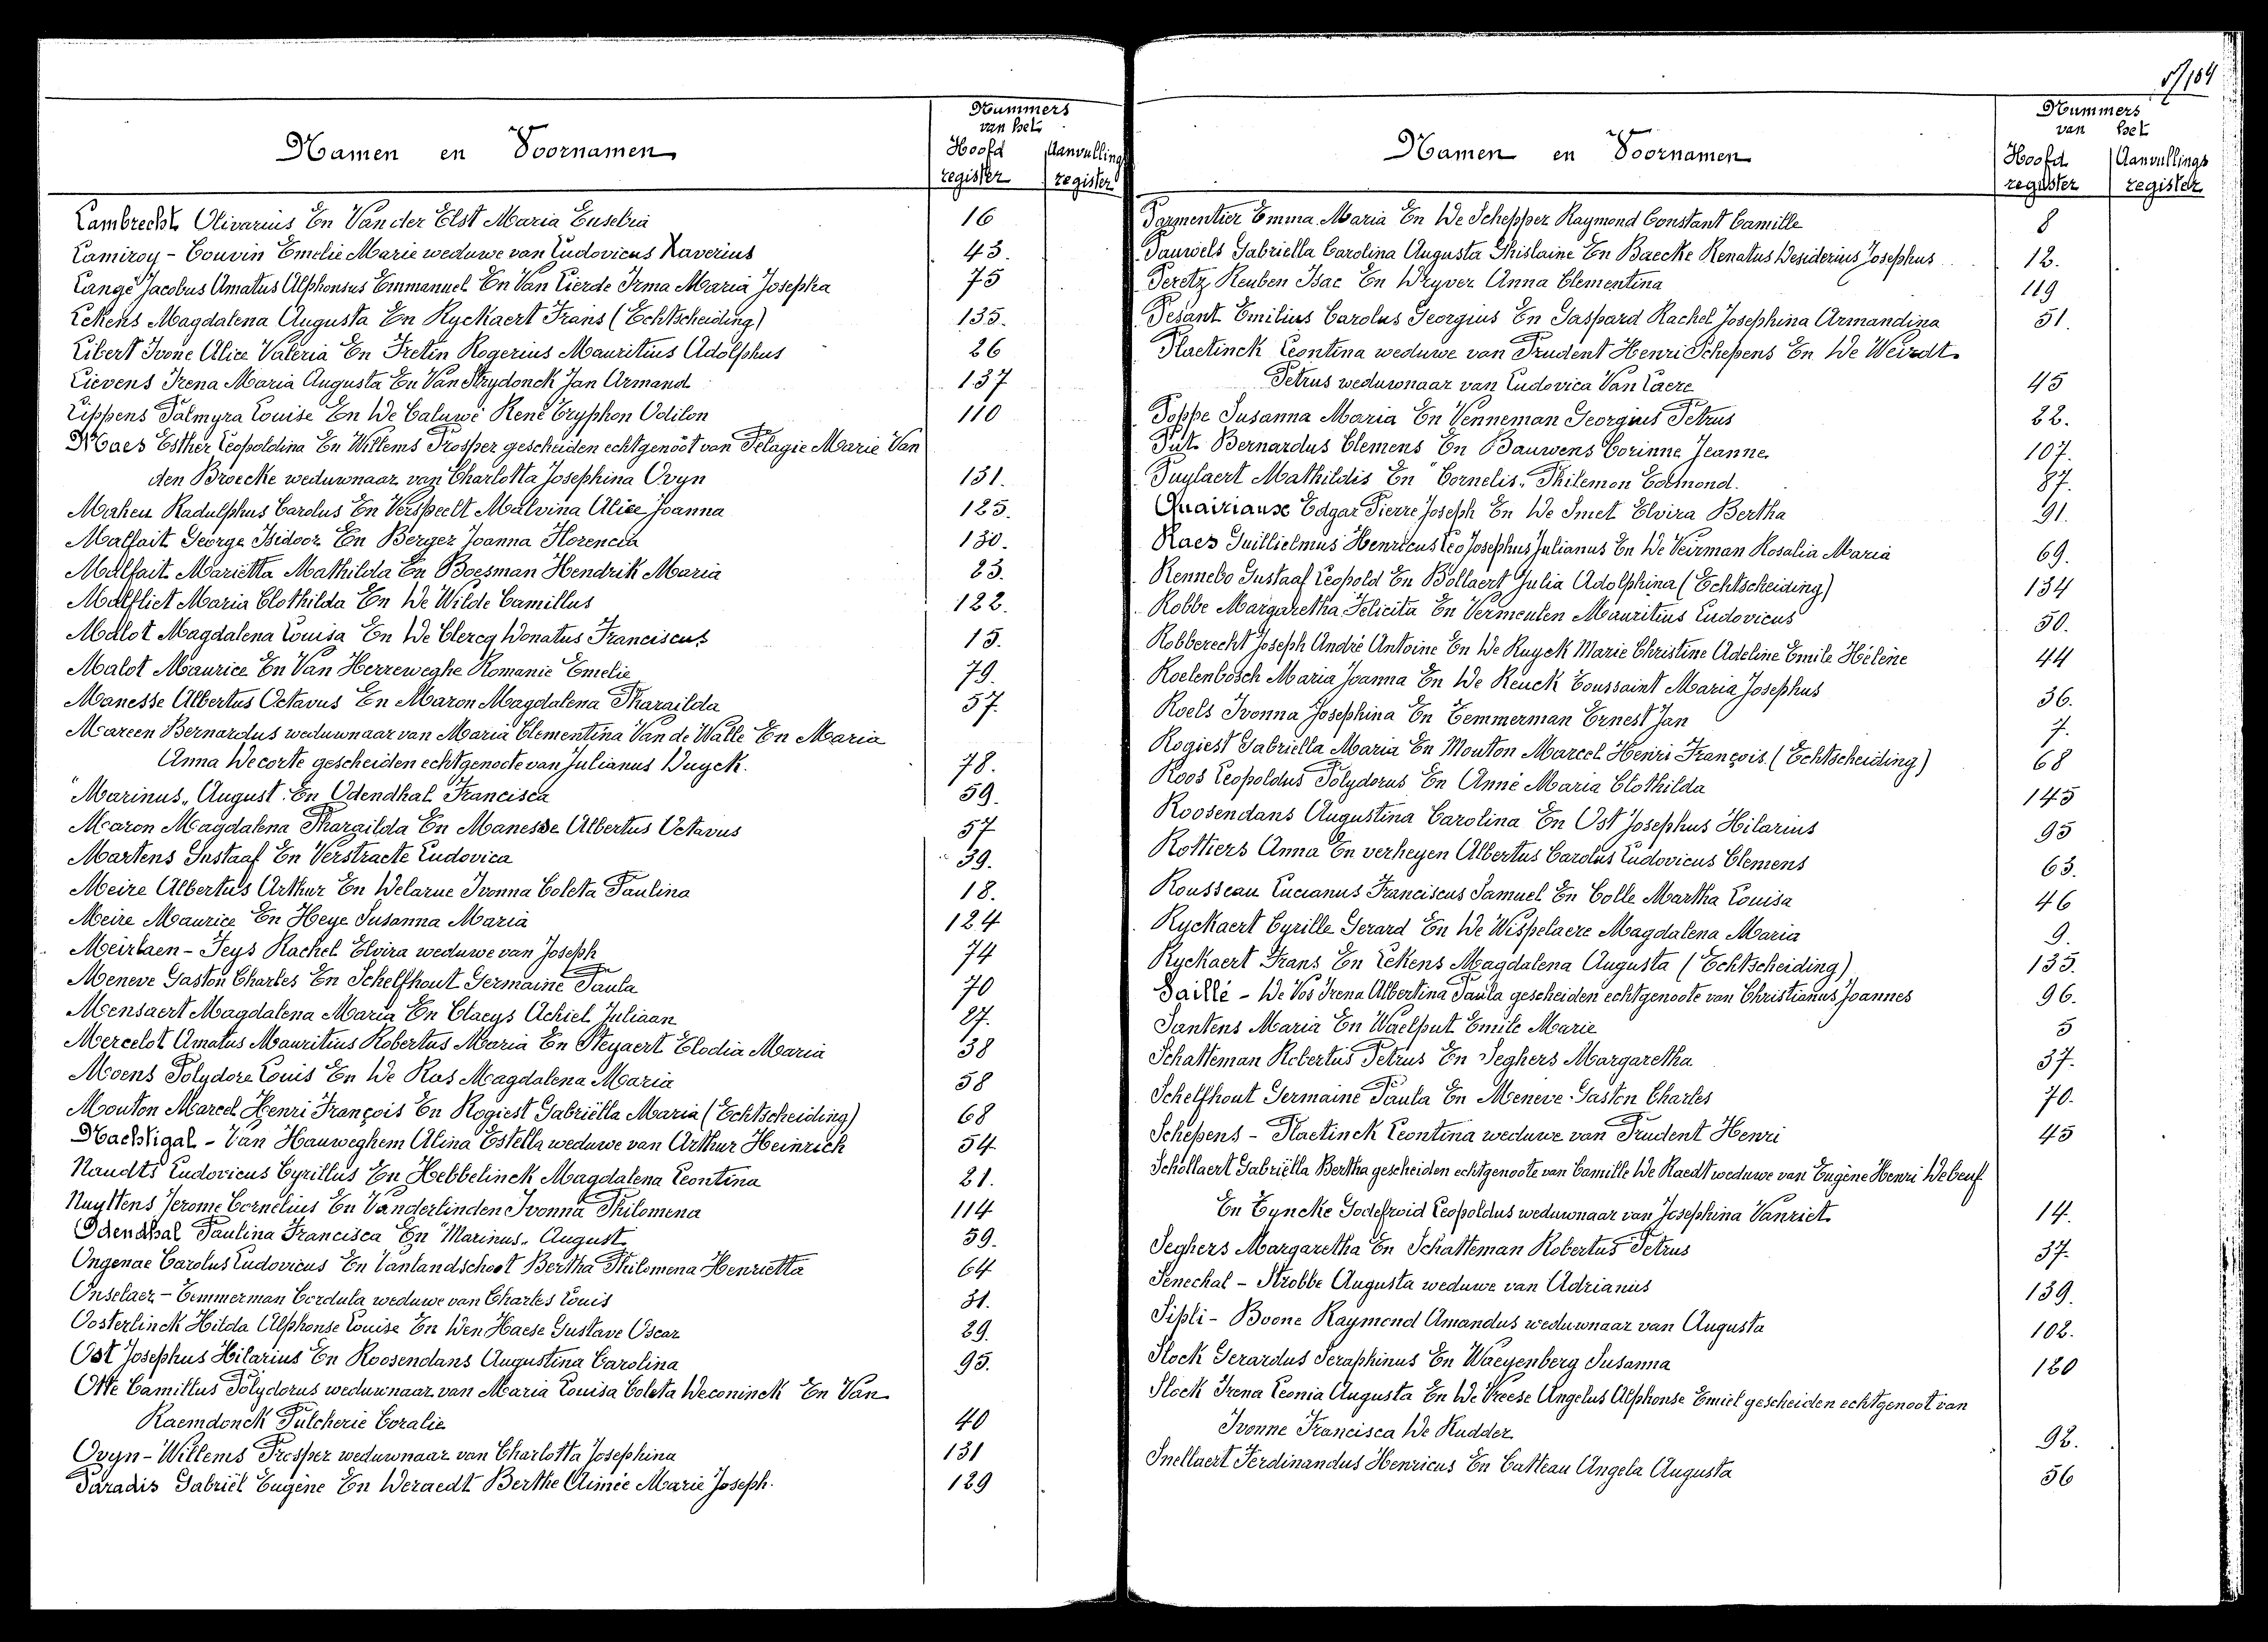 Nummers
van het
Namen en Voornamen Hoofd Aanvullings
register register
Lambrecht Olivarius En Van der Elst Maria Eusebia 16
Lamiroy - Couvin Emelie Marie weduwe van Ludovicus Xaverius 43.
Langé Jacobus Amatus Alphonsus Emmanuel En Van Lierde Irma Maria Josepha 75
Lekens Magdalena Augusta En Ryckaert Frans (Echtscheiding) 135.
Libert Ivone Alice Valeria En Fretin Rogerius Mauritius Adolphus 26
Lievens Irena Maria Augusta En Van Strydonck Jan Armand 137
Lippens Palmyra Louise En De Caluwé René Tryphon Odilon 110
Maes Esther Leopoldina En Willems Prosper gescheiden echtgenoot van Pelagie Marie Van
den Broecke weduwnaar van Charlotta Josephina Ovyn 131.
Maheu Radulphus Carolus En Verspeelt Malvina Alice Joanna 125.
Malfait George Isidoor En Berger Joanna Florencia 130.
Malfait Marietta Mathilda En Boesman Hendrik Maria 23.
Malfliet Maria Clothilda En De Wilde Camillus 122.
Malot Magdalena Louisa En De Clercq Donatus Franciscus 15.
Malot Maurice En Van Herreweghe Romanie Emelie 79.
Manesse Albertus Octavus En Maron Magdalena Pharaïlda 57.
Mareen Bernardus weduwnaar van Maria Clementina Van de Walle En Maria
Anna Decorte gescheiden echtgenoote van Julianus Duyck. 78.
"Marinus" August En Odendhal Francisca 59.
Maron Magdalena Pharaïlda En Manesse Albertus Octavus 57
Martens Gustaaf En Verstraete Ludovica 39.
Meire Albertus Arthur En Delarue Ivonna Coleta Paulina 18.
Meire Maurice En Heye Susanna Maria 124
Meirlaen - Feys Rachel Elvira weduwe van Joseph 74
Meneve Gaston Charles En Schelfhout Germaine Paula 70
Mensaert Magdalena Maria En Claeys Achiel Juliaan 27.
Mercelot Amatus Mauritius Robertus Maria En Steyaert Elodia Maria 38
Moens Polydore Louis En De Ras Magdalena Maria 58
Mouton Marcel Henri François En Rogiest Gabriëlla Maria (Echtscheiding) 68
Nachtigal - Van Hauweghem Alina Estella weduwe van Arthur Heinrich 54
Naudts Ludovicus Cyrillus En Hebbelinck Magdalena Leontina 21.
Nuyttens Jerome Cornelius En Vanderlinden Ivonna Philomena 114
Odendhal Paulina Francisca En "Marinus" August 59.
Ongenae Carolus Ludovicus En Vanlandschoot Bertha Philomena Henrietta 64
Onselaer - Temmerman Cordula weduwe van Charles Louis 31.
Oosterlinck Hilda Alphonse Louise En Den Haese Gustave Oscar 29.
Ost Josephus Hilarius En Roosendans Augustina Carolina 95.
Otte Camillus Polydorus weduwnaar van Maria Louisa Coleta Deconinck En Van
Raemdonck Pulcherie Coralie 40
Ovyn - Willems Prosper weduwnaar van Charlotta Josephina 131
Paradis Gabriël Eugène En Deraedt Berthe Aimée Marie Joseph. 129
Nummers
van het
Namen en Voornamen Hoofd Aanvullings
register register
Parmentier Emma Maria En De Schepper Raymond Constant Camille 8
Pauwels Gabriella Carolina Augusta Ghislaine En Baecke Renatus Desiderius Josephus 12.
Peretz Reuben Isac En Dryver Anna Clementina 119
Pesant Emilius Carolus Georgius En Gaspard Rachel Josephina Armandina 51.
Plaetinck Leontina weduwe van Prudent Henri Schepens En De Weirdt
Petrus weduwnaar van Ludovica Van Laere 45
Poppe Susanna Maria En Venneman Georgius Petrus 22.
Put Bernardus Clemens En Bauwens Corinne Jeanne 107.
Puylaert Mathildis En "Cornelis" Philemon Edmond. 87.
Quairiaux Edgar Pierre Joseph En De Smet Elvira Bertha 91.
Raes Guillielmus Henricus Leo Josephus Julianus En De Veirman Rosalia Maria 69.
Rennebo Gustaaf Leopold En Bollaert Julia Adolphina (Echtscheiding) 134
Robbe Margaretha Felicita En Vermeulen Mauritius Ludovicus 50.
Robberecht Joseph André Antoine En De Ruyck Marie Christine Adeline Emile Hélène 44
Roelenbosch Maria Joanna En De Reuck Toussaint Maria Josephus 36.
Roels Ivonna Josephina En Temmerman Ernest Jan 7.
Rogiest Gabriella Maria En Mouton Marcel Henri François. (Echtscheiding) 68
Roos Leopoldus Polydorus En Anné Maria Clothilda 145
Roosendans Augustina Carolina En Ost Josephus Hilarius 95
Rottiers Anna En verheyen Albertus Carolus Ludovicus Clemens 63.
Rousseau Lucianus Franciscus Samuel En Colle Martha Louisa 46
Ryckaert Cyrille Gerard En De Wispelaere Magdalena Maria 9.
Ryckaert Frans En Lekens Magdalena Augusta (Echtscheiding) 135.
Saillé - De Vos Irena Albertina Paula gescheiden echtgenoote van Christianus Joannes 96.
Santens Maria En Waelput Emile Marie 5
Schatteman Robertus Petrus En Seghers Margaretha 37.
Schelfhout Germaine Paula En Meneve Gaston Charles 70.
Schepens - Plaetinck Leontina weduwe van Prudent Henri 45
Schollaert Gabriëlla Bertha gescheiden echtgenoote van Camille De Raedt weduwe van Eugène Henri Debeuf
En Tyncke Godefroid Leopoldus weduwnaar van Josephina Vanriet 14.
Seghers Margaretha En Schatteman Robertus Petrus 37.
Senechal - Strobbe Augusta weduwe van Adrianus 139.
Sipli - Boone Raymond Amandus weduwnaar van Augusta 102.
Slock Gerardus Seraphinus En Waeyenberg Susanna 120
Slock Irena Leonia Augusta En De Vreese Angelus Alphonse Emiel gescheiden echtgenoot van
Ivonne Francisca De Rudder 92.
Snellaert Ferdinandus Henricus En Catteau Angela Augusta 56